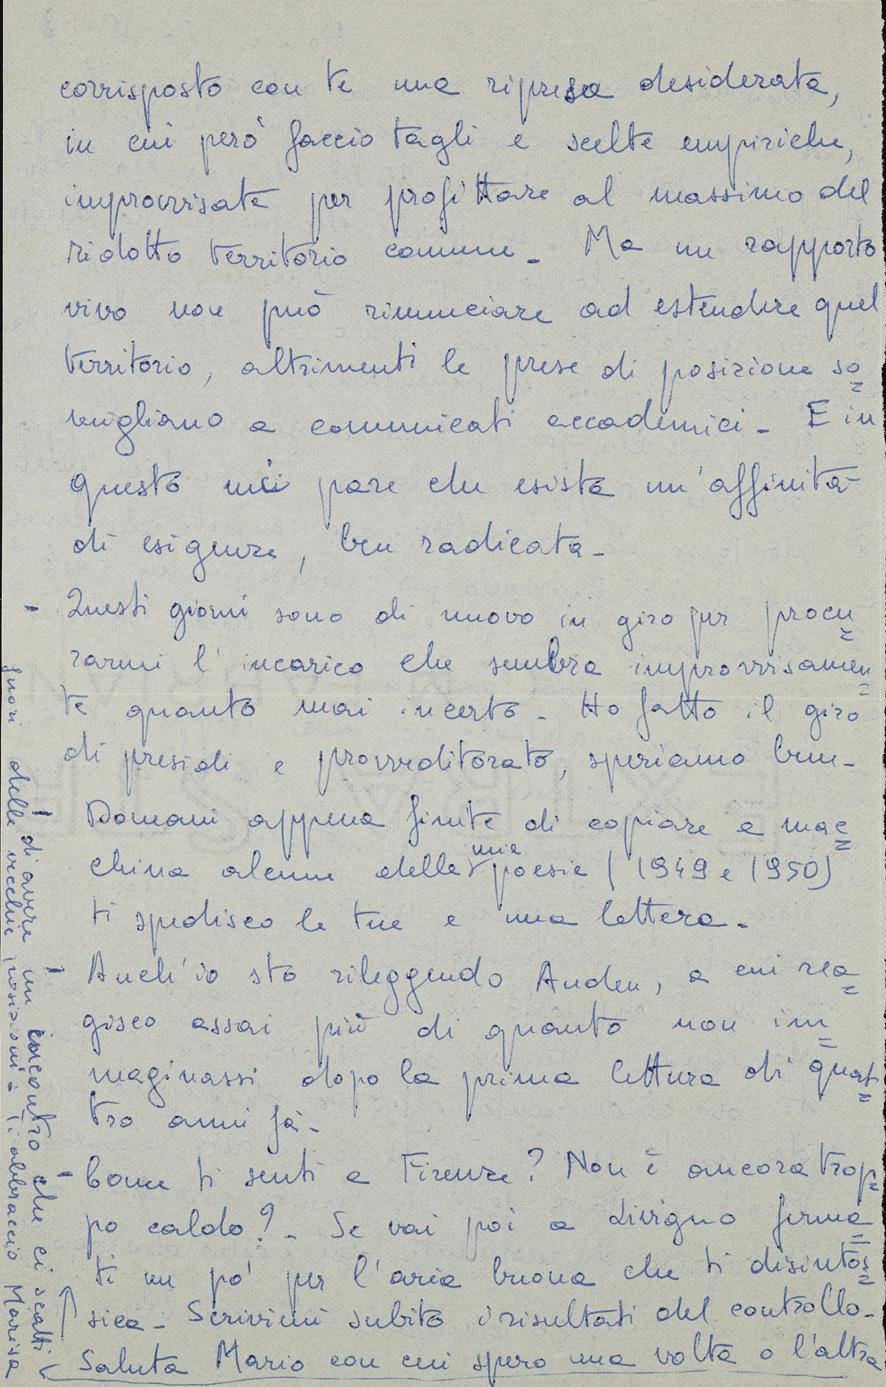 corrisposto con te una ripresa desiderata,
in cui però faccio tagli e scelte empiriche,
improvvisate per profittare al massimo del
ridotto territorio comune. Ma un rapporto
vivo non può rinunciare ad estendere quel
territorio, altrimenti le prese di posizione so=
migliano a comunicati accademici. E in
questo mi pare che esista un'affinità
di esigenze, ben radicata.
Questi giorni sono di nuovo in giro per procu=
rarmi l'incarico che sembra improvvisamen=
te quanto mai incerto. Ho fatto il giro
di presidi e provveditorato, speriamo bene.
Domani appena finite di copiare a mac=
china alcune delle mie poesie (1949 e 1950)
ti spedisco le tue e una lettera.
Anch'io sto rileggendo Auden, a cui rea=
gisco assai più di quanto non im=
maginassi dopo la prima lettura di quat=
tro anni fa.
Come ti senti a Firenze? Non è ancora trop=
po caldo? Se vai poi a Livigno ferma=
ti un po' per l'aria buona che ti disintos=
sica. Scrivimi subito i risultati del controllo.
Saluta Mario con cui spero una volta o l'altra
di avere un incontro che ci scatti
fuori delle vecchie posizioni. Ti abbraccio Marisa